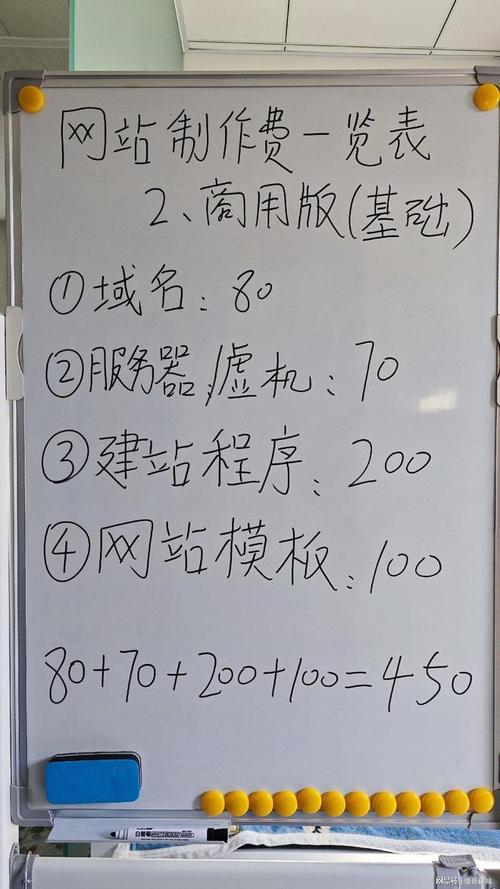 网站制作费一览表
2、商用版(基础)
①域名：80
②服务器/虚机：70
③建站程序：200
④网站模板：100
80+70+200+100=450
白板笔